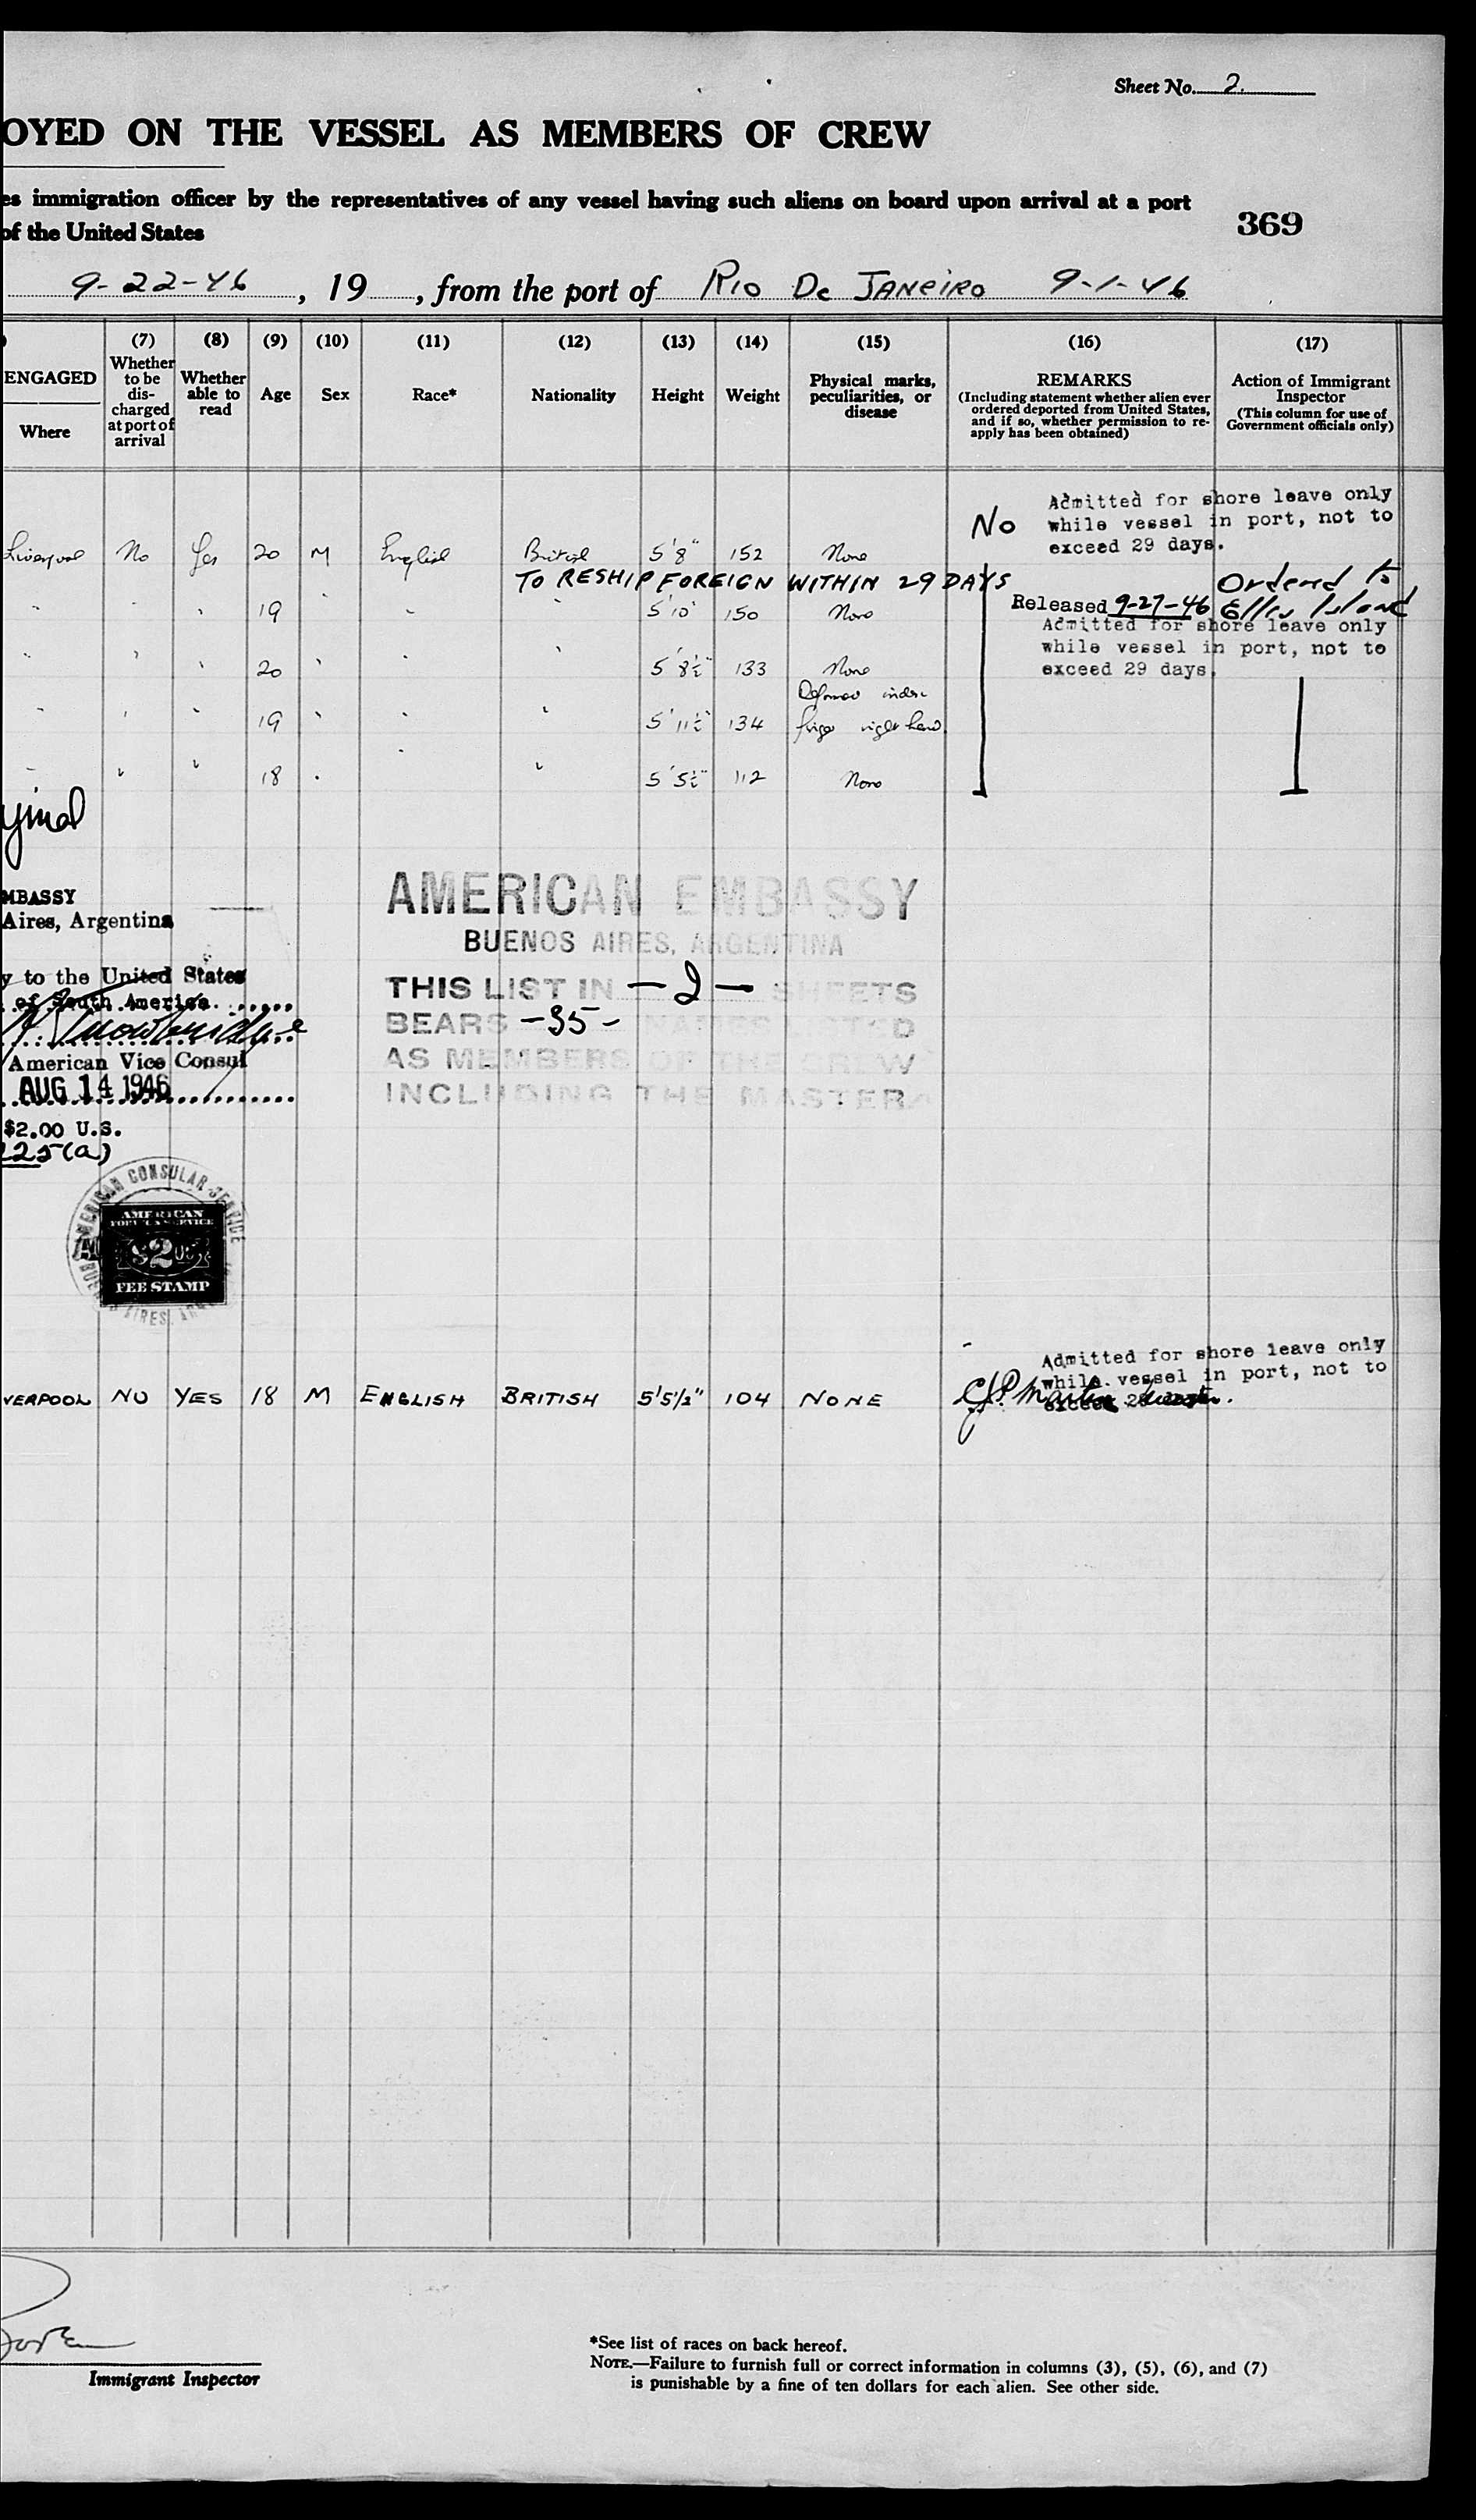 Sheet No. 2.
OYED ON THE VESSEL AS MEMBERS OF CREW
es immigration officer by the representatives of any vessel having such aliens on board upon arrival at a port
of the United States
369
9-22-46, 19, from the port of Rio De Janeiro 9-1-46
(7) (8) (9) (10) (11) (12) (13) (14) (15) (16) (17)
ENGAGED
Where
Whether to be dis-charged at port of arrival
Whether able to read
Age
Sex
Race*
Nationality
Height
Weight
Physical marks, peculiarities, or disease
REMARKS
(Including statement whether alien ever
ordered deported from United States,
and if so, whether permission to re-
apply has been obtained)
Action of Immigrant
Inspector
(This column for use of
Government officials only)
Admitted for shore leave only
No while vessel in port, not to
exceed 29 days.
Liverpool No Yes 20 M English British 5'8" 152 None
TO RESHIP FOREIGN WITHIN 29 DAYS
Ordered to
Released 9-27-46 Ellis Island
" " 19 " " " 5'10" 150 None
Admitted for shore leave only
while vessel in port, not to
exceed 29 days.
" " " 20 " " " 5'8½" 133 None
Deformed index
" " " 19 " " " 5'11½" 134 finger right hand
" " " 18 " " " 5'5½" 112 None
MBASSY
Aires, Argentina
y to the United States
of South America
American Vice Consul
AUG 14 1946
$2.00 U.S.
225(a)
AMERICAN EMBASSY
BUENOS AIRES, ARGENTINA
THIS LIST IN -2- SHEETS
BEARS -35- NAMES LISTED
AS MEMBERS OF THE CREW
INCLUDING THE MASTER
AMERICAN CONSULAR SERVICE
AMERICAN
FOREIGN SERVICE
$2.00
FEE STAMP
Admitted for shore leave only
while vessel in port, not to
exceed 29
VERPOOL NO YES 18 M ENGLISH BRITISH 5'5½" 104 NONE
Immigrant Inspector
*See list of races on back hereof.
NOTE.—Failure to furnish full or correct information in columns (3), (5), (6), and (7)
is punishable by a fine of ten dollars for each alien. See other side.